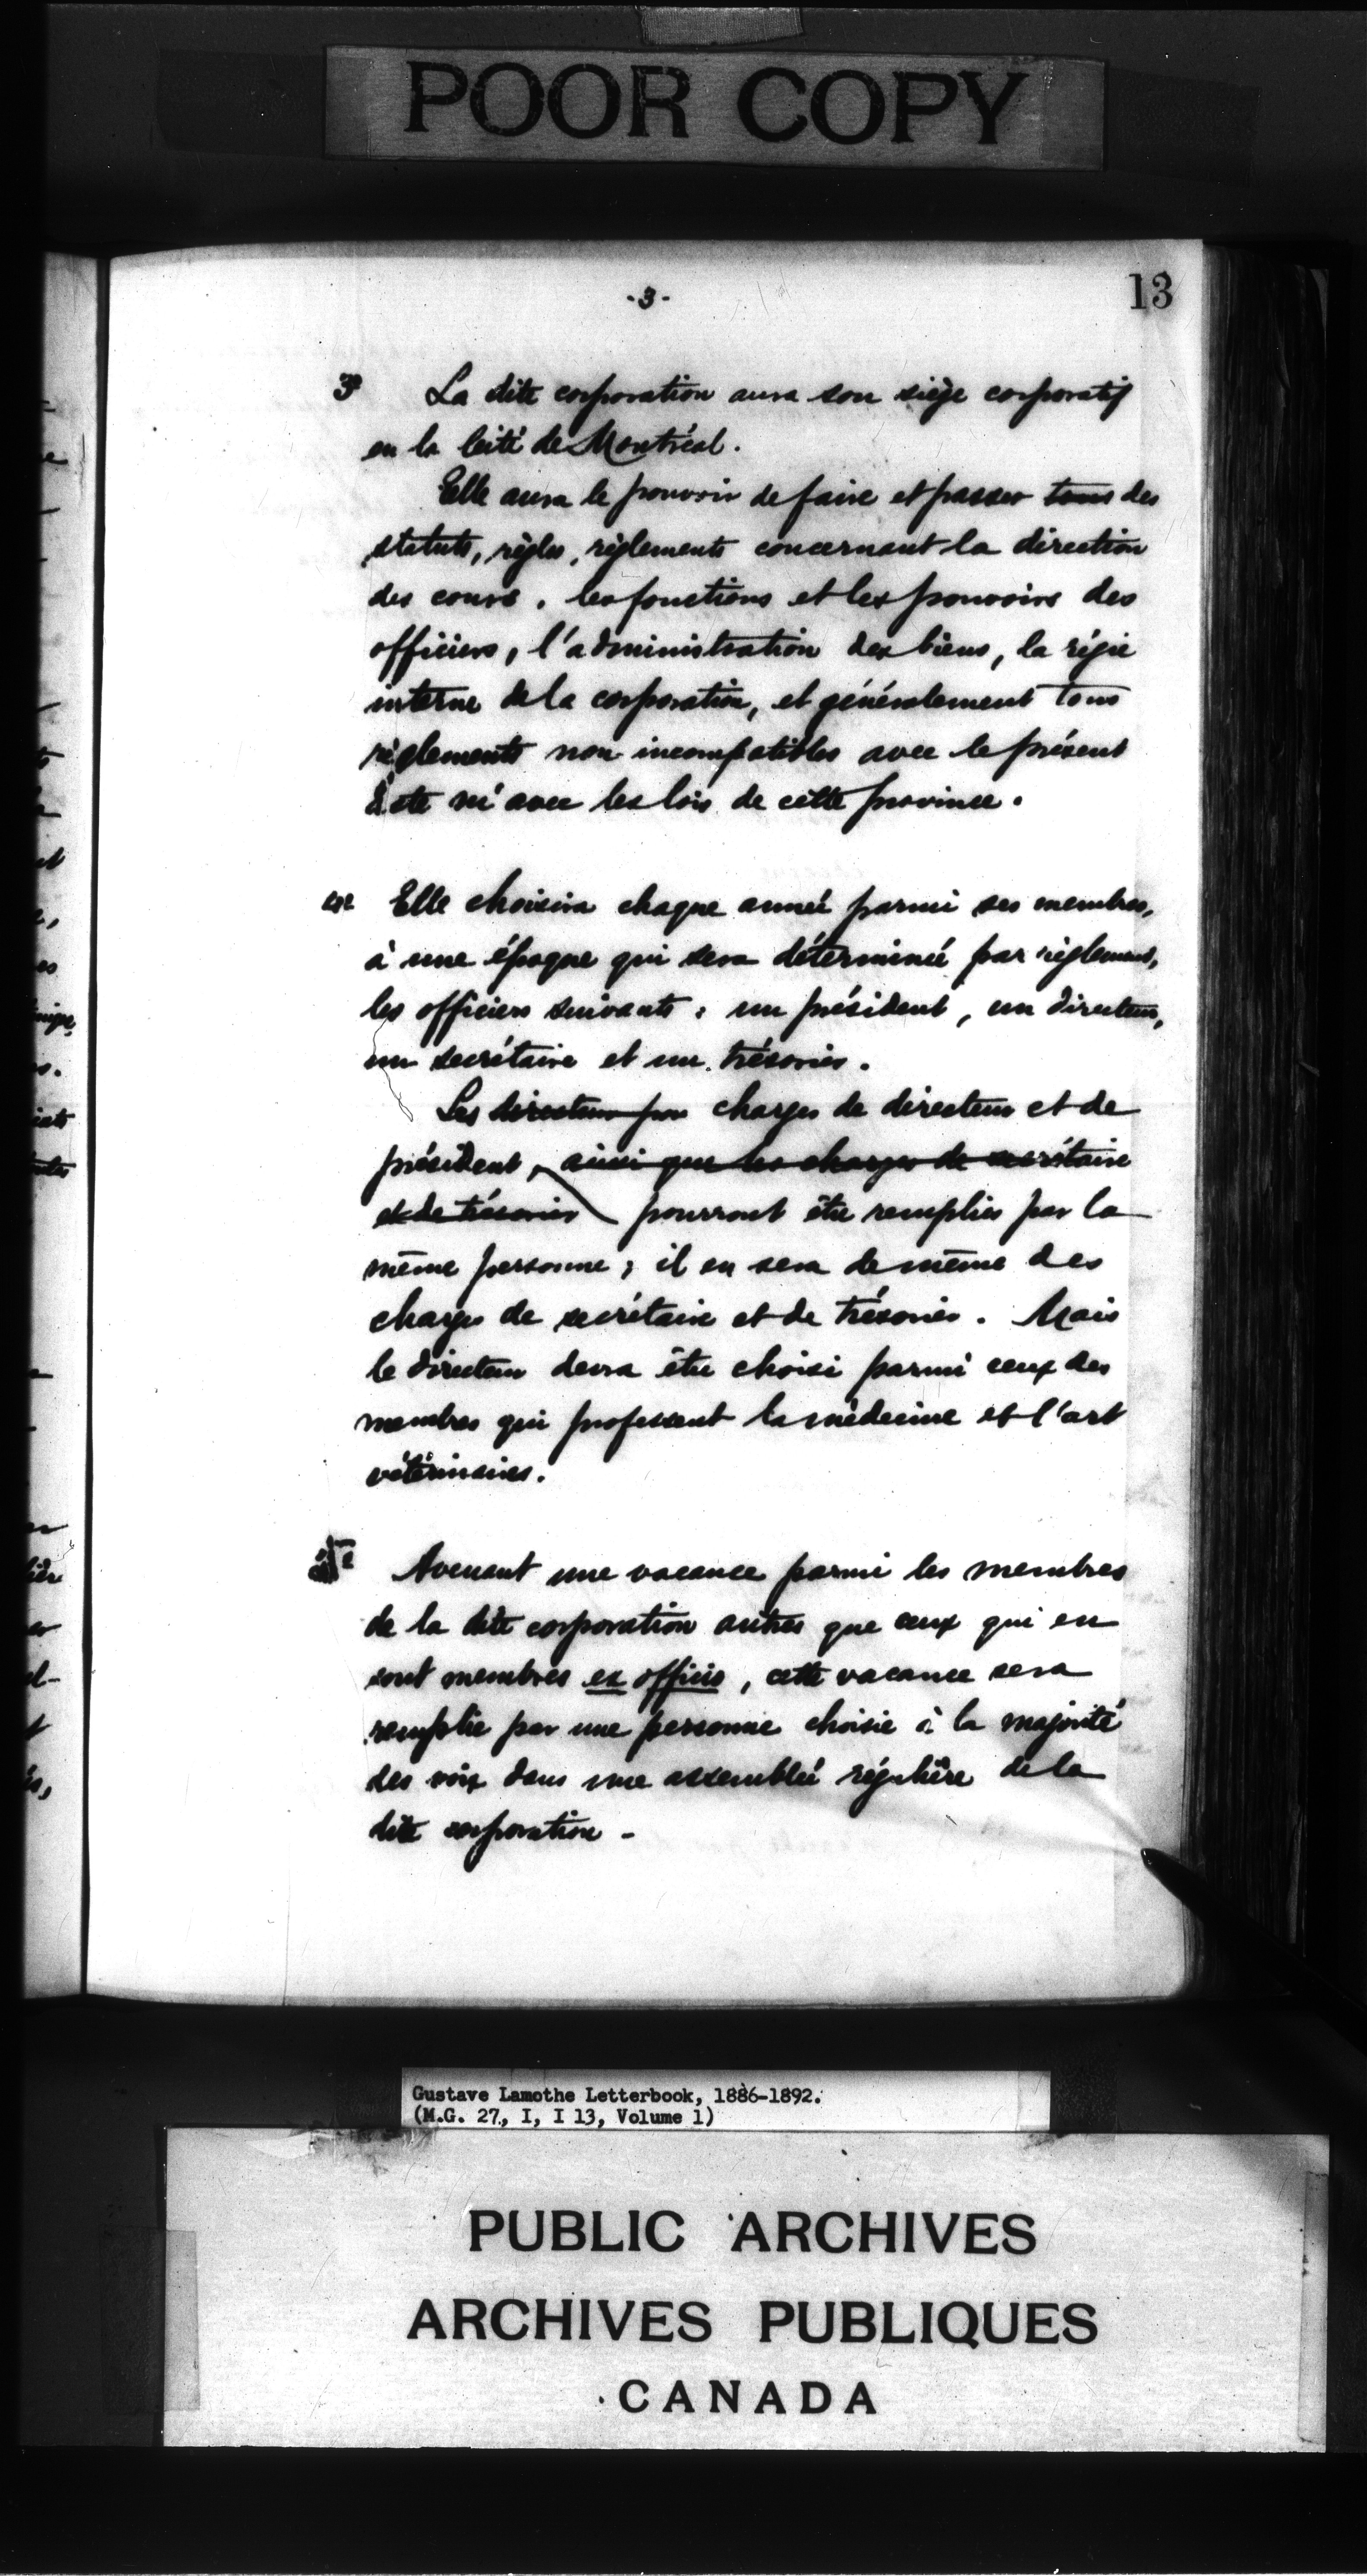 POOR COPY
13
-3-
3º La dite corporation aura son siège corporatif
en la Cité de Montréal.
Elle aura le pouvoir de faire et passer tous des
statuts, règles, règlements concernant la direction
des cours, les fonctions et les pouvoirs des
officiers, l'administration des biens, la régie
interne de la corporation, et généralement tous
règlements non incompatibles avec le présent
Acte ni avec les lois de cette province.
4º Elle choisira chaque année parmi ses membres,
à une époque qui sera déterminée par règlement,
les officiers suivants : un président, un directeur,
un secrétaire et un trésorier.
Les directeur pou charges de directeur et de
président, ainsi que les charges de secrétaire
et de trésorier pourront être remplies par la
même personne ; il en sera de même des
charges de secrétaire et de trésorier. Mais
le directeur devra être choisi parmi ceux des
membres qui professent la médecine et l'art
vétérinaires.
Avenant une vacance parmi les membres
de la dite corporation autres que ceux qui en
sont membres ex officio, cette vacance sera
remplie par une personne choisie à la majorité
des voix dans une assemblée régulière de la
dite corporation -
Gustave Lamothe Letterbook, 1886-1892.
(M.G. 27, I, I 13, Volume 1)
PUBLIC ARCHIVES
ARCHIVES PUBLIQUES
CANADA